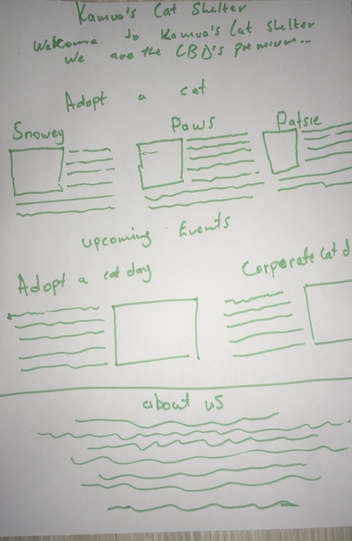 Kamva's Cat Shelter
Welcome to Kamva's Cat Shelter
We are the CBD's premium...
Adopt a cat
Snowey Paws Patsie
Upcoming Events
Adopt a cat day Corporate Cat d
about us